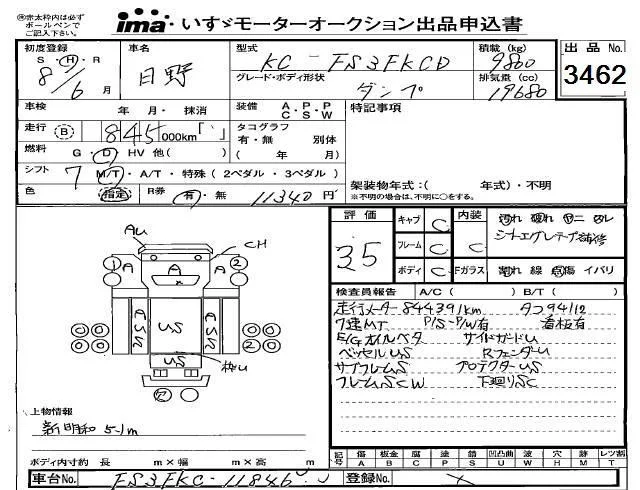 ※赤太枠内は必ず
ボールペンで
ご記入下さい。
ima いすゞモーターオークション出品申込書
初度登録
S・H・R
8/6月
車名
日野
型式
KC-FS3FKCD
グレード・ボディ形状
ダンプ
積載(kg)
9800
排気量(cc)
19680
出品No.
3462
車検 年 月・抹消
装備 A・P・P C・S・W
特記事項
走行 B 845 000km
タコグラフ
有・無 別体
( 年 月)
燃料 G・D・HV 他( )
シフト 7 M/T・A/T・特殊(2ペダル・3ペダル)
色 指定 R券 有・無 11340円
架装物年式:( 年式)・不明
※不明の場合は、不明に○をする。
評価
35
キャブ C
フレーム C
ボディ C
内装 C
Fガラス
汚れ 破れ ヤニ
割れ 線 点傷 イバリ
検査員報告 A/C( ) B/T( )
走行メーター844391km タコ94112
7速MT P/S-P/W有 看板有
E/Gオイルベタ サイドガードU
ベッセルUS RフェンダーU
サブフレームUS プロテクターUS
フレームSCW 下廻りSC
AU
CH
A
A
A
1
2
1
2
CSU
US
CSU
US
枠U
欠
上物情報
新明和 5-1m
ボディ内寸約 長 m×幅 m×高 m
記号 傷A 板金B 腐C 塗P 錆S 凹凸凸曲U 波W 穴H 跡M レツ割T
車台No. FS3FKC-11846
登録No.